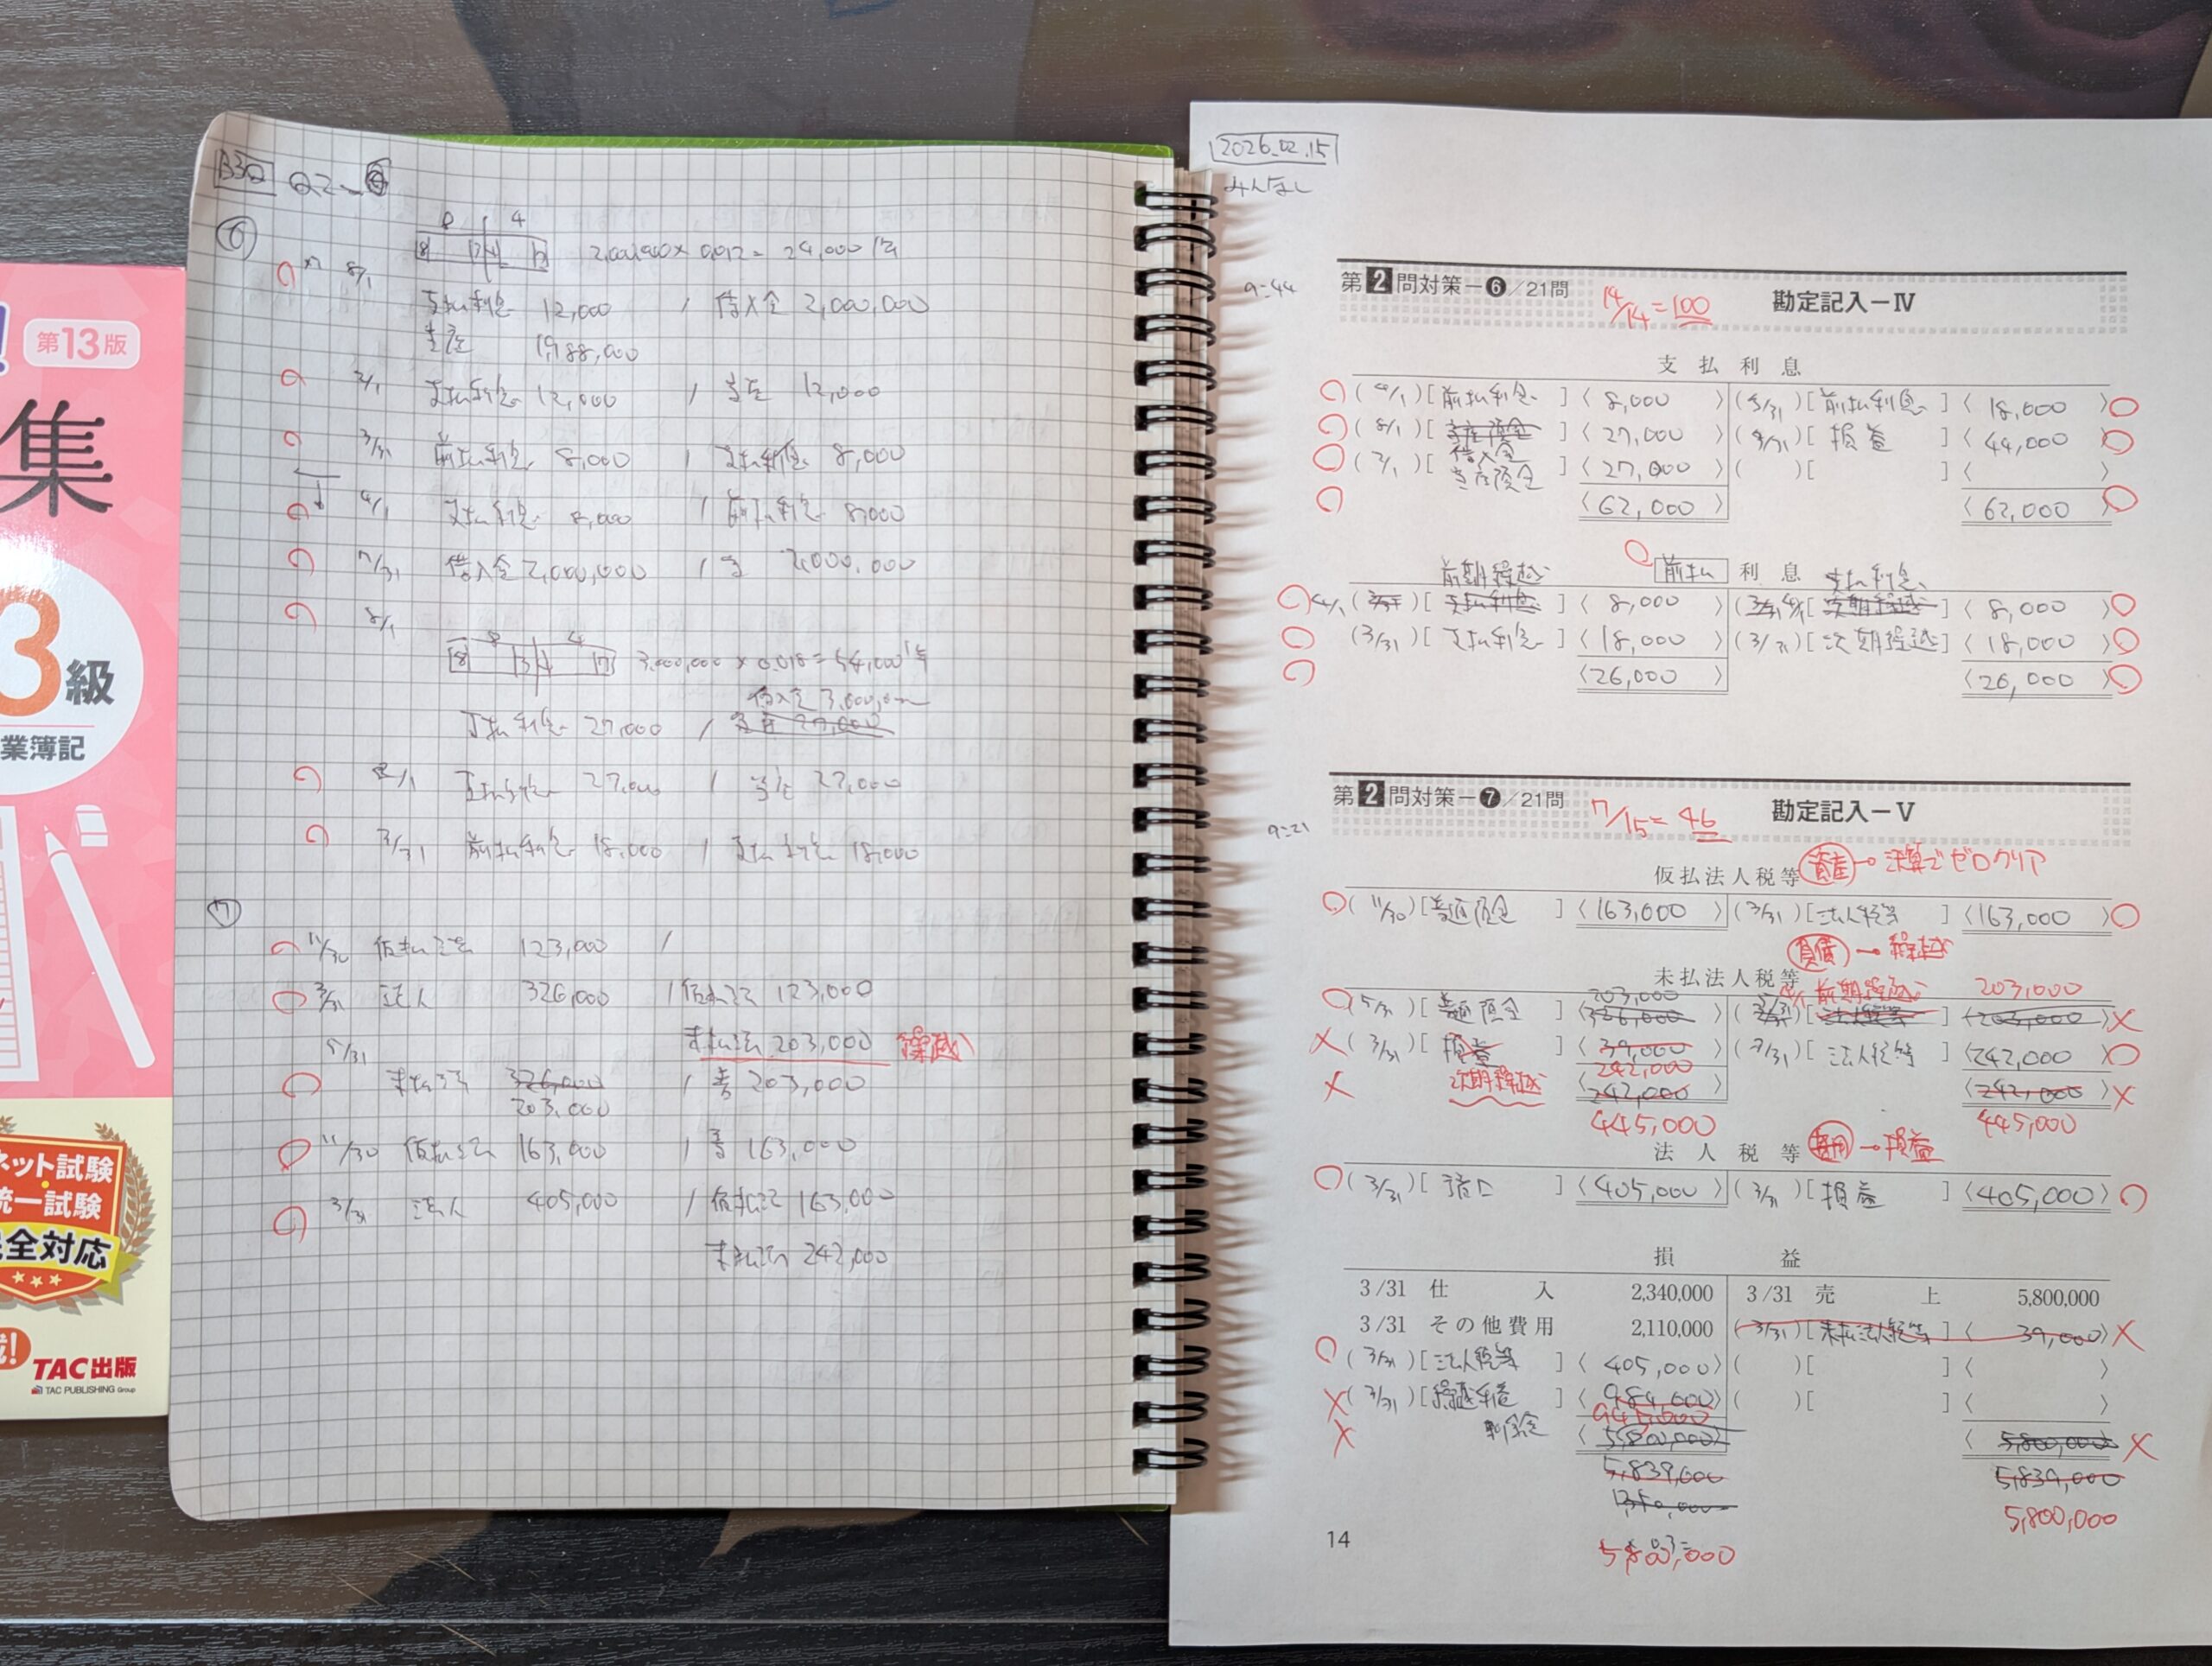 第13版
集
3級
業簿記
ネット試験
統一試験
完全対応
TAC出版
TAC PUBLISHING Group
B3Q Q2-6
⑥
8 4
2,000,000 × 0.012 = 24,000 1年
8/1
支払利息 12,000 / 借入金 2,000,000
当座 1,988,000
2/1 支払利息 12,000 / 当座 12,000
3/31 前払利息 8,000 / 支払利息 8,000
4/1 支払利息 8,000 / 前払利息 8,000
7/31 借入金 2,000,000 / 当 2,000,000
8/1
3,000,000 × 0.018 = 54,000 1年
借入金 3,000,000
支払利息 27,000 / 当座 27,000
2/1 支払利息 27,000 / 当座 27,000
3/31 前払利息 18,000 / 支払利息 18,000
⑦
11/30 仮払法 123,000 /
3/31 法人 326,000 / 仮払法 123,000
未払法 203,000 繰越
5/31
未払法 326,000 / 普 203,000
203,000
11/30 仮払法 163,000 / 普 163,000
3/31 法人 405,000 / 仮払法 163,000
未払法 242,000
2026.02.15
みんなし
9:44
第2問対策-❻/21問 14/14=100 勘定記入-Ⅳ
支払利息
(4/1)[前払利息]〈8,000〉(3/31)[前払利息]〈18,000〉
(8/1)[当座預金]〈27,000〉(3/31)[損益]〈44,000〉
借入金
(2/1)[当座預金]〈27,000〉( )[ ]〈 〉
〈62,000〉〈62,000〉
前払 利息
前期繰越 支払利息
4/1 (3/31)[支払利息]〈8,000〉(3/31 4/1)[次期繰越]〈8,000〉
(3/31)[支払利息]〈18,000〉(3/31)[次期繰越]〈18,000〉
〈26,000〉〈26,000〉
9:21
第2問対策-❼/21問 7/15=46 勘定記入-Ⅴ
仮払法人税等 資産→決算でゼロクリア
(11/30)[普通預金]〈163,000〉(3/31)[法人税等]〈163,000〉
負債→繰越
未払法人税等
203,000 4/1 前期繰越 203,000
(5/31)[普通預金]〈326,000〉(3/31)[法人税等]〈203,000〉
(3/31)[損益]〈39,000〉(3/31)[法人税等]〈242,000〉
次期繰越 242,000
〈242,000〉〈242,000〉
445,000 445,000
法人税等 費用→損益
(3/31)[諸口]〈405,000〉(3/31)[損益]〈405,000〉
損益
3/31 仕入 2,340,000 3/31 売上 5,800,000
3/31 その他費用 2,110,000 (3/31)[未払法人税等]〈39,000〉
(3/31)[法人税等]〈405,000〉( )[ ]〈 〉
(3/31)[繰越利益]〈984,000〉( )[ ]〈 〉
945,000
剰余金 〈5,800,000〉〈5,800,000〉
5,839,000 5,839,000
5,800,000
5,800,000
14